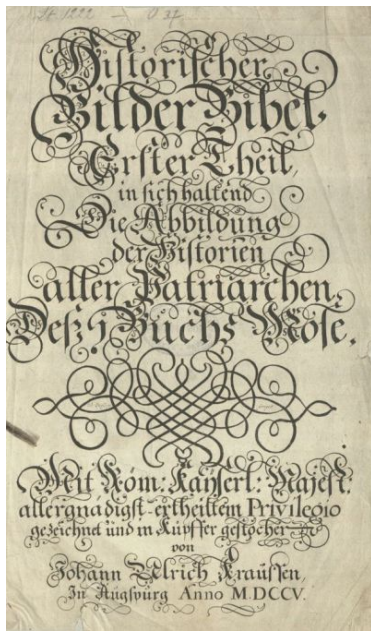 Historischer
Bilder Bibel,
Erster Theil,
in sich haltend
Die Abbildung
der Historien
aller Patriarchen,
Deß 1 Buchs Mose.
Mit Röm: Kaÿserl: Majest:
allergnädigst-ertheiltem Privilegio
gezeichnet und in Kupffer gestochen
von
Johann Ulrich Kraussen,
In Augspurg Anno M.DCCV.